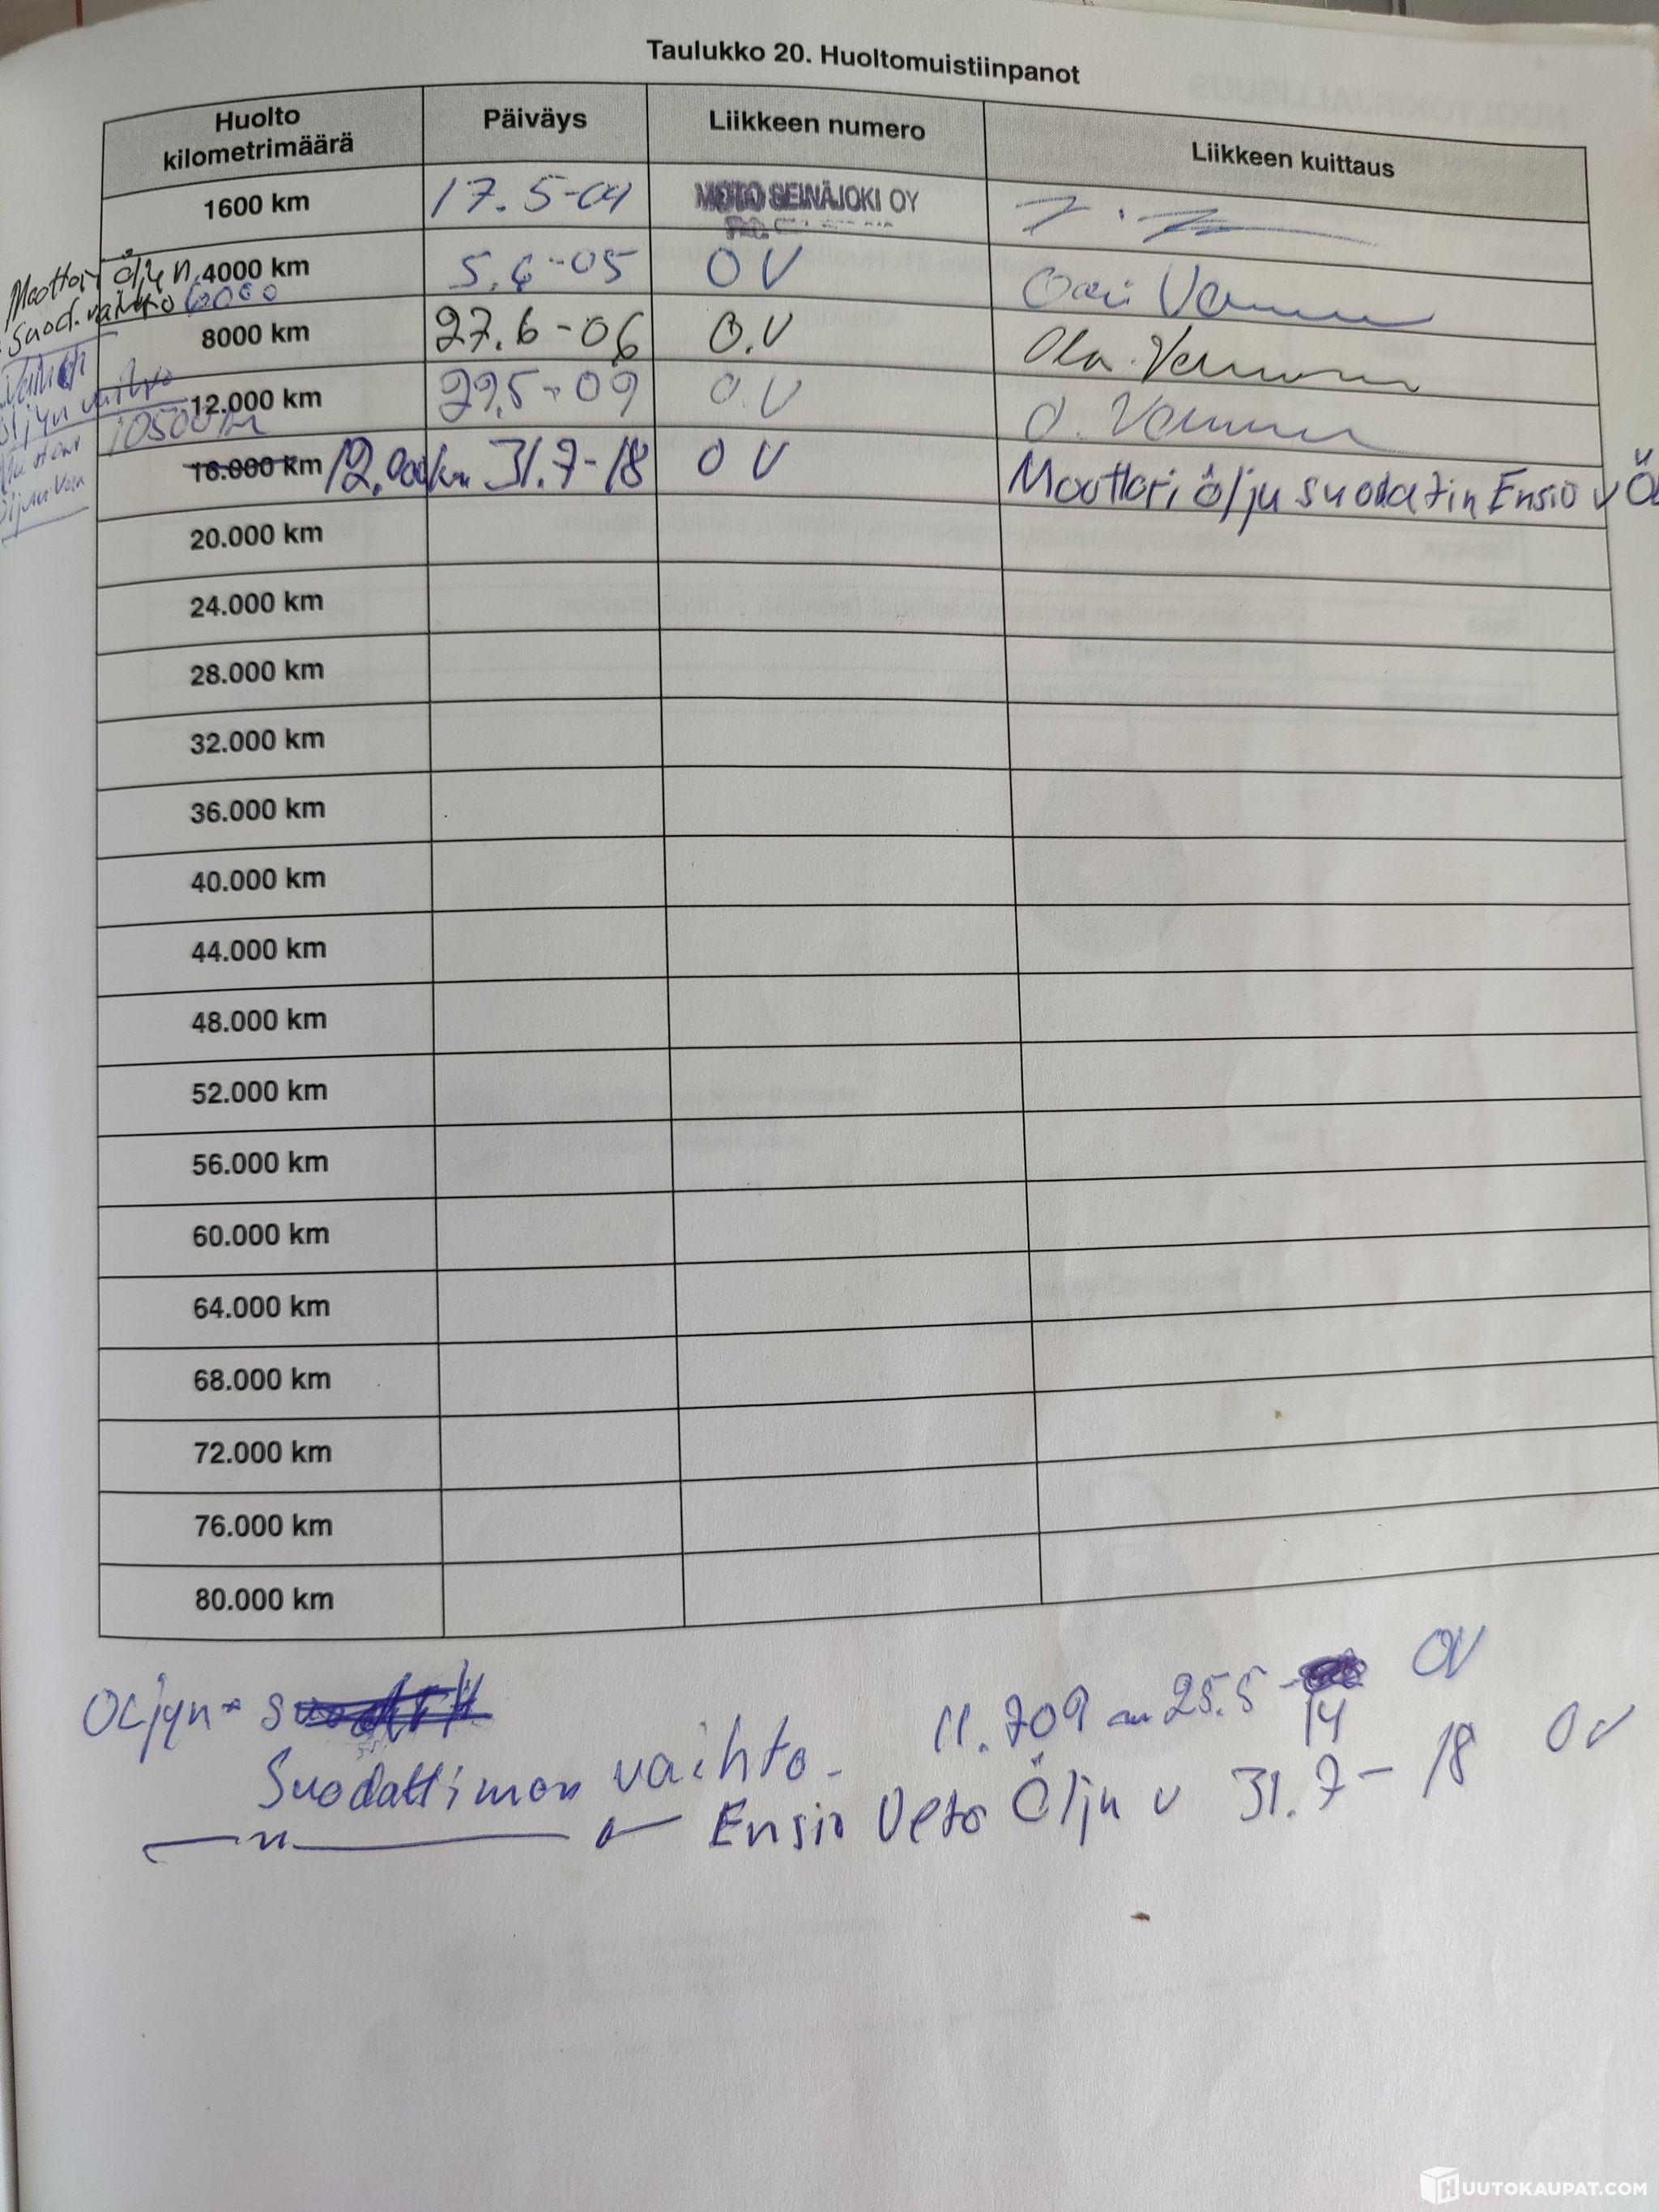 Taulukko 20. Huoltomuistiinpanot
Huolto kilometrimäärä Päiväys Liikkeen numero Liikkeen kuittaus
1600 km 17.5-04 MOTO SEINÄJOKI OY
Moottori öljyn
suod. vaihto 6000
4000 km 5.6-05 OV
8000 km 27.6-06 O.V
öljyn vaihto
10500 km
12.000 km 29.5-09 O.V O.
16.000 km 12.000 km 31.7-18 OV Moottori öljy suodatin Ensio v Ö
20.000 km
24.000 km
28.000 km
32.000 km
36.000 km
40.000 km
44.000 km
48.000 km
52.000 km
56.000 km
60.000 km
64.000 km
68.000 km
72.000 km
76.000 km
80.000 km
Öljyn- 11.709 25.5-14 OV
Suodattimon vaihto.
Ensio Veto Öljy v 31.7-18 OV
HUUTOKAUPAT.COM